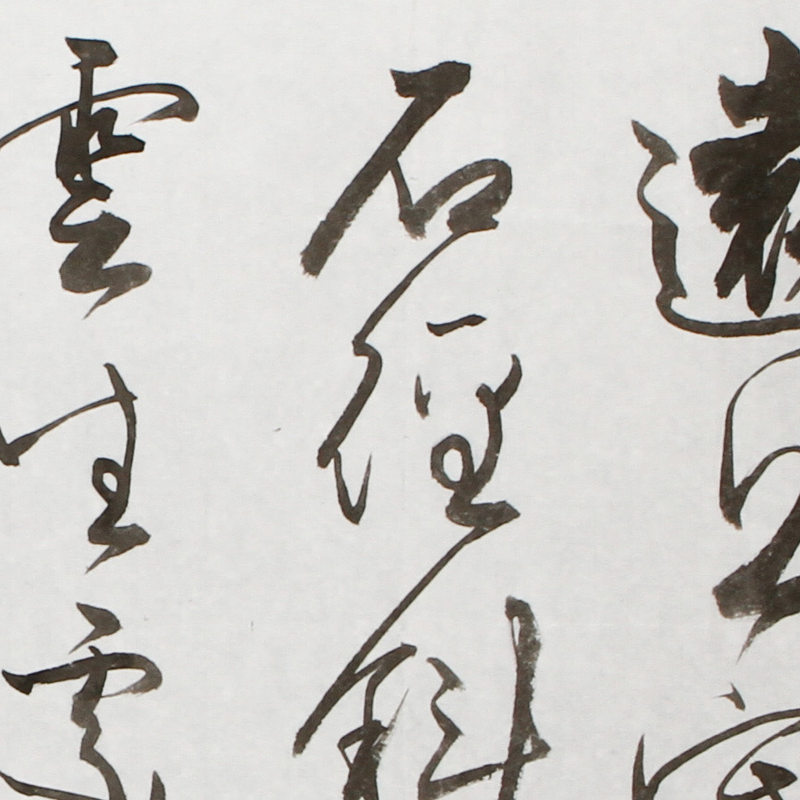 遠上寒
石徑斜
雲生處